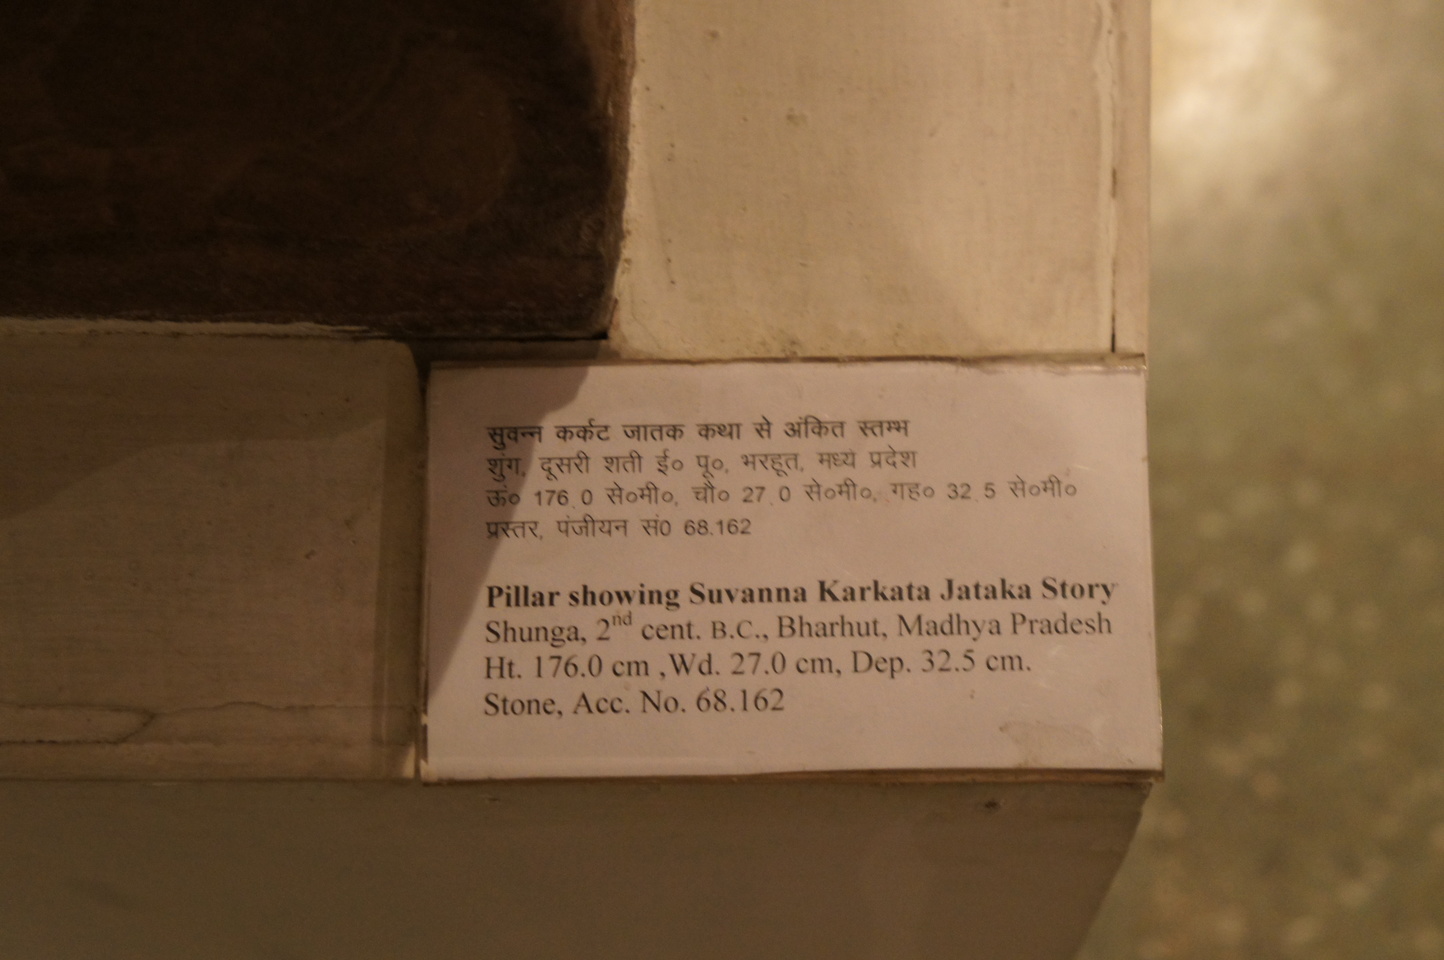 सुवन्न कर्कट जातक कथा से अंकित स्तम्भ
शुंग, दूसरी शती ई० पू०, भरहूत, मध्य प्रदेश
ऊं० 176.0 से०मी०, चौ० 27.0 से०मी०, गह० 32.5 से०मी०
प्रस्तर, पंजीयन सं0 68.162
Pillar showing Suvanna Karkata Jataka Story
Shunga, 2nd cent. B.C., Bharhut, Madhya Pradesh
Ht. 176.0 cm ,Wd. 27.0 cm, Dep. 32.5 cm.
Stone, Acc. No. 68.162